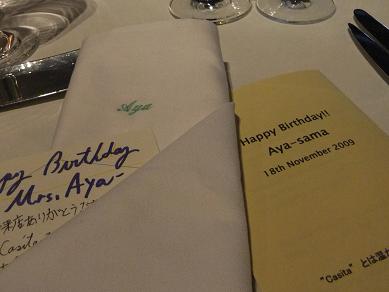 Aya
Happy Birthday!!
Aya-sama
18th November 2009
"Casita" とは温か
py Birthday
Mrs. Aya-
来店ありがとう
Casita